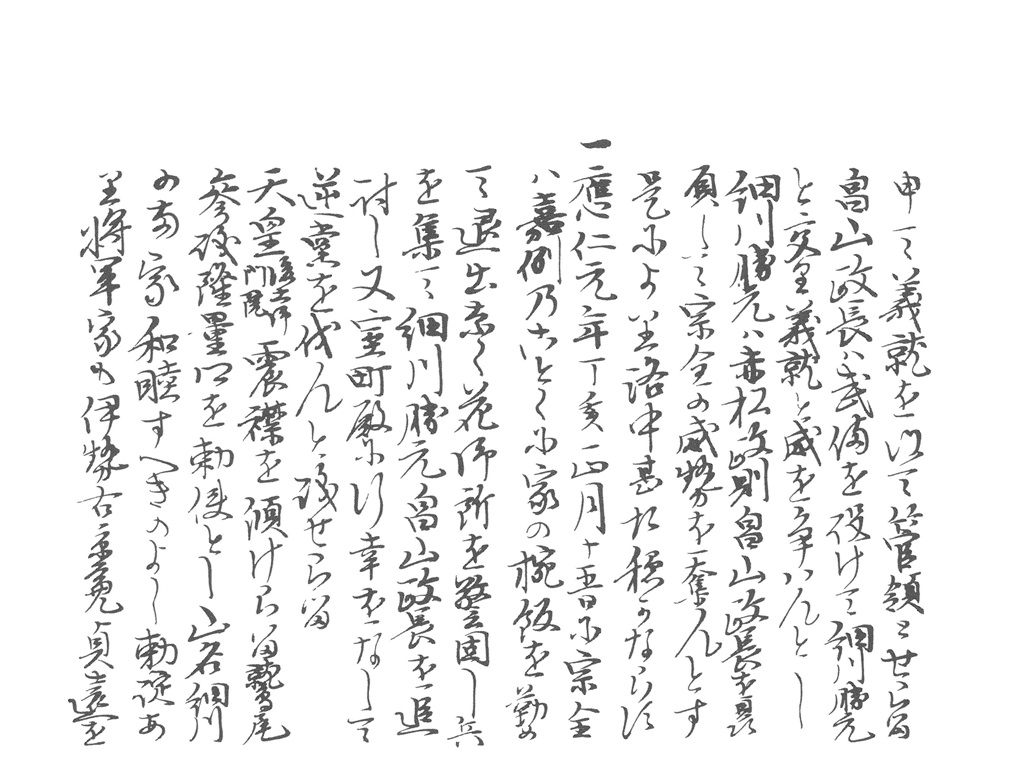 申て義就を以て管領とせらる
畠山政長ハ武備を役けて細川勝元
と交里義就と威を争ハんとし
細川勝元ハ赤松政則畠山政長を最
頂して宗全の威勢を奪んとす
是により洛中甚た穏かならす
一應仁元年丁亥正月十五日に宗全
ハ嘉例のことくに家の椀飯を勤め
て退出なく花御所を警固し兵
を集て細川勝元畠山政長を追
討し又室町殿に行幸をなして
逆黨を伐んと議せらる
天皇後土御門院震襟を傾けらる鷲尾
参議隆量卿を勅使とし山名細川
の両家和睦すへきのよし勅诞あ
里将軍家も伊勢右京亮貞遠を